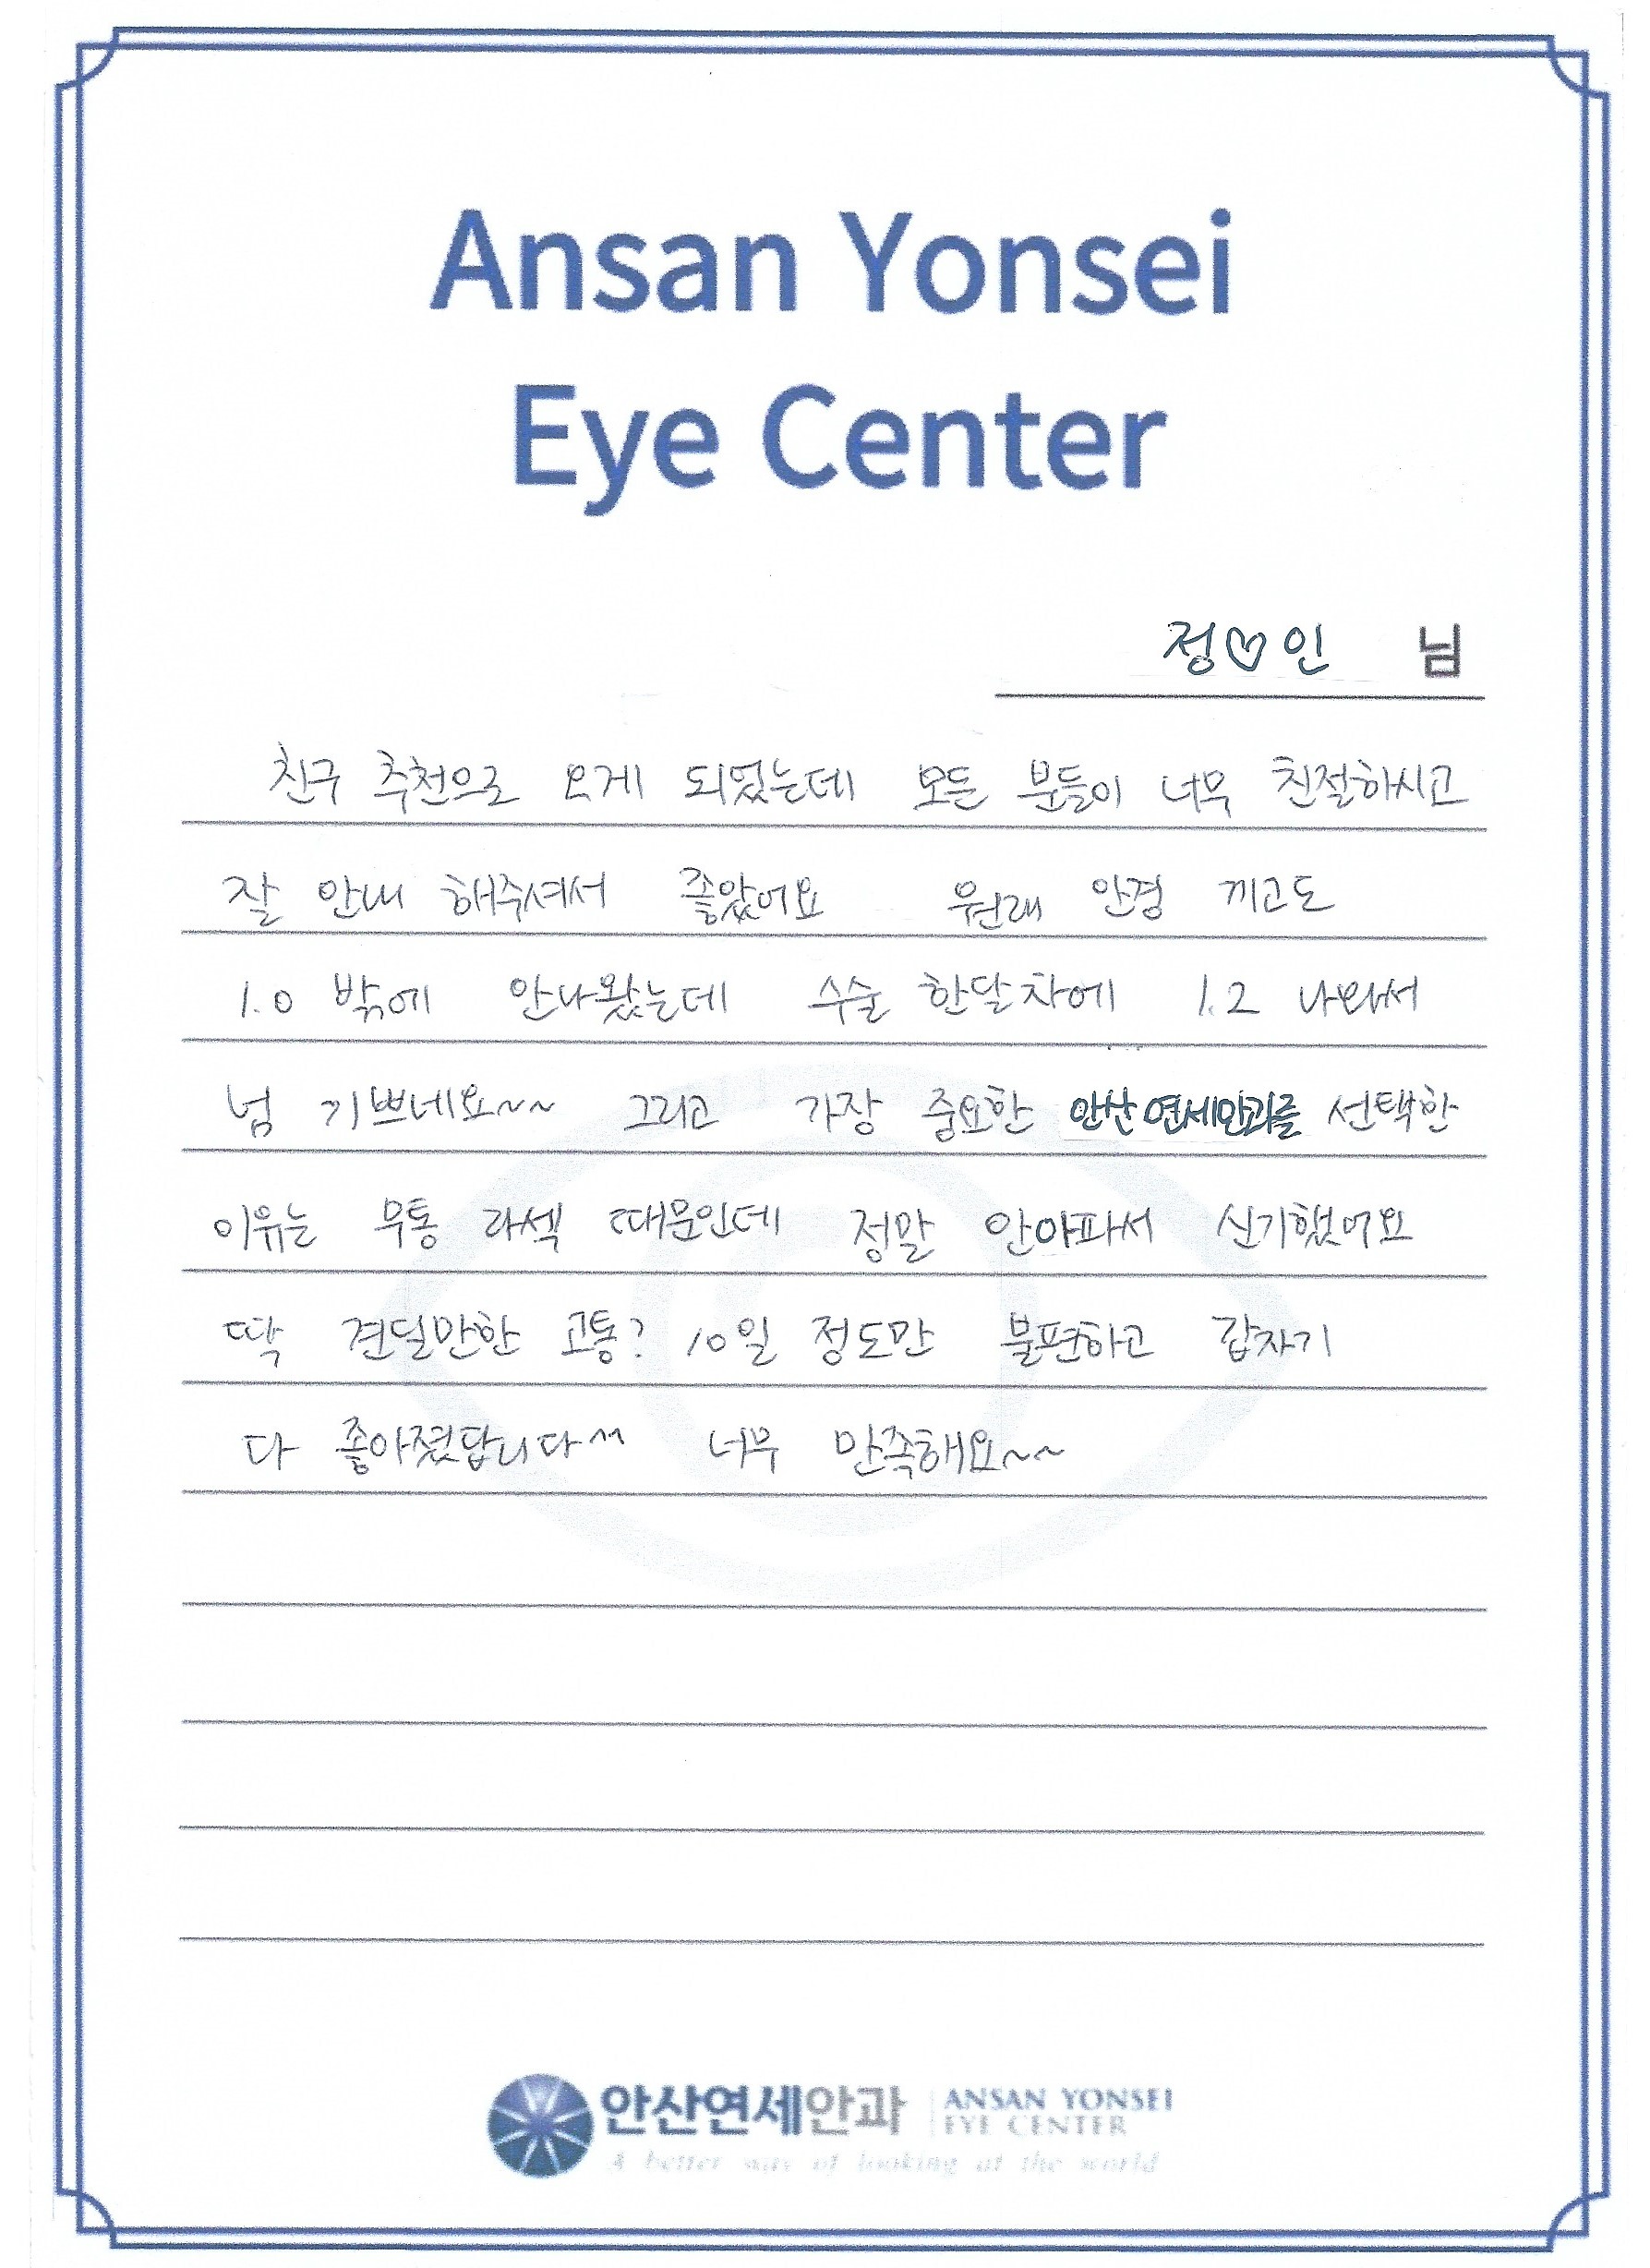 Ansan Yonsei
Eye Center
정♡인 님
친구 추천으로 오게 되었는데 모든 분들이 너무 친절하시고
잘 안내 해주셔서 좋았어요 원래 안경 끼고도
1.0 밖에 안나왔는데 수술 한달차에 1.2 나와서
넘 기쁘네요~~ 그리고 가장 중요한 안산연세안과를 선택한
이유는 무통 라섹 때문인데 정말 안아파서 신기했어요
딱 견딜만한 고통? 10일 정도만 불편하고 갑자기
다 좋아졌답니다^^ 너무 만족해요~~
안산연세안과 ANSAN YONSEI
EYE CENTER
A better way of looking at the world